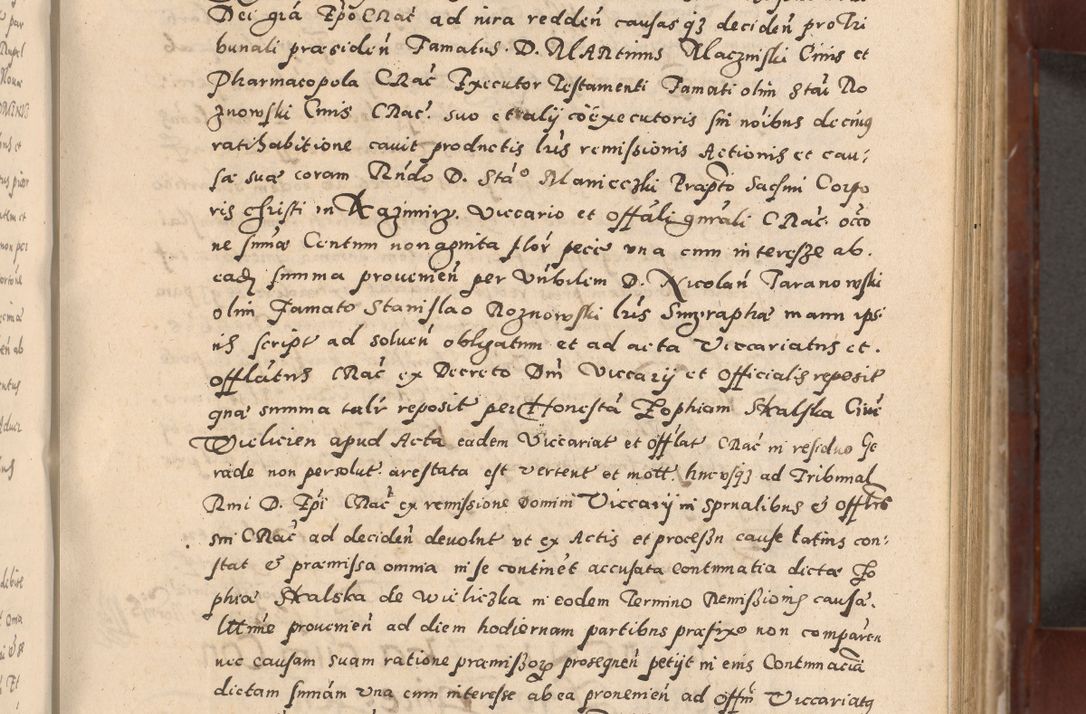 Dei grã Epõ CRac̃ ad iura redden̄ causasqȝ deciden̄ pro Tri
bunali præsiden̄ Famatus. D. MARtinus Mączinski Ciuis et
Pharmacopola CRac̃ Executor Testamenti Famati olim Stãi Ro
znowski Ciuis CRac̃. suo et alij coexecutoris sui nõibus de cuiꝰ
ratihabitione cauit productis lr̃is remissionis Actionis et cau:
sæ suæ coram Rndo D. Stãº Maniecȝki Præpto Sacsmi Corpo
ris christi in Kazimirȝ. Viccario et Offãli gnrali CRac̃. occo
ne sum̃æ Centum nonaginta flor̃ pecie una cum interesze ab.
eadȝ summa prouenien̄ per Vnbilem D. Nicolan̄ Taranowski
olim Famato Stanislao Roznowski lr̃is Syngrapha manu ipsi
us script ad soluen̄ obligatum et ad acta Viccariatus et.
offlatus CRac̃ ex Decreto Dm̃ Viccarij et Officialis reposit
quæ summa talr̃ reposit per Honestã Zophiam Skalska Ciuē
Vieliczien apud Acta eadem Viccariat et offlat CRac̃ in residuo Ge
rade non persolut. arestata est vertent et mott. hucusqȝ ad Tribunal
Rmi D. Epĩ CRac̃ ex remissione Domini Viccarij in sprnalibus & Offlis
sui CRac̃ ad deciden̄ deuolut vt ex Actis et processu cause latius con:
stat & præmissa omnia in se continet accusata contumatia dictæ Zo
phiæ Skalska de Wieliczka in eodem Termino Remissionis causæ.
Ultime prouenien̄ ad diem hodiernam partibus præfixo non comparen
nec causam suam ratione præmissoꝝ prosequen̄ petijt in eius Contumaciã
dictam summãm vna cum interesse ab ea prouenien̄ ad offm̃ Viccariatꝰ